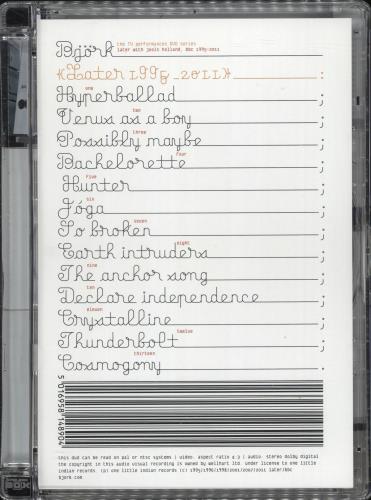 Björk the TV performances DVD series
later with jools holland, bbc 1995-2011
《Later 1995_2011》 :
one
Hyperballad ;
two
Venus as a boy ;
three
Possibly maybe ;
four
Bachelorette ;
five
Hunter ;
six
Jóga ;
seven
So broken ;
eight
Earth intruders ;
nine
The anchor song ;
ten
Declare independence ;
eleven
Crystalline ;
twelve
Thunderbolt ;
thirteen
Cosmogony .
5 016958 148904
this dvd can be read on pal or ntsc systems | video: aspect ratio 4:3 | audio: stereo dolby digital
the copyright in this audio visual recording is owned by wellhart ltd. under license to one little
indian records (p) one little indian records (c) 1995/1996/1998/2001/2007/2011 later/bbc
bjork.com